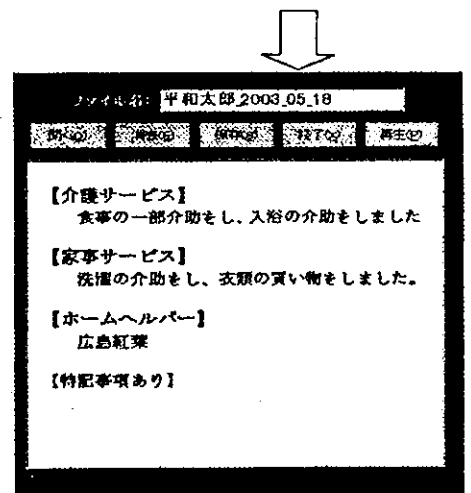 ファイル名: 平和太郎_2003_05_18
開く(O) 保存(S) 終了(X) 再生(P)
【介護サービス】
食事の一部介助をし、入浴の介助をしました
【家事サービス】
洗濯の介助をし、衣類の買い物をしました。
【ホームヘルパー】
広島紅葉
【特記事項あり】